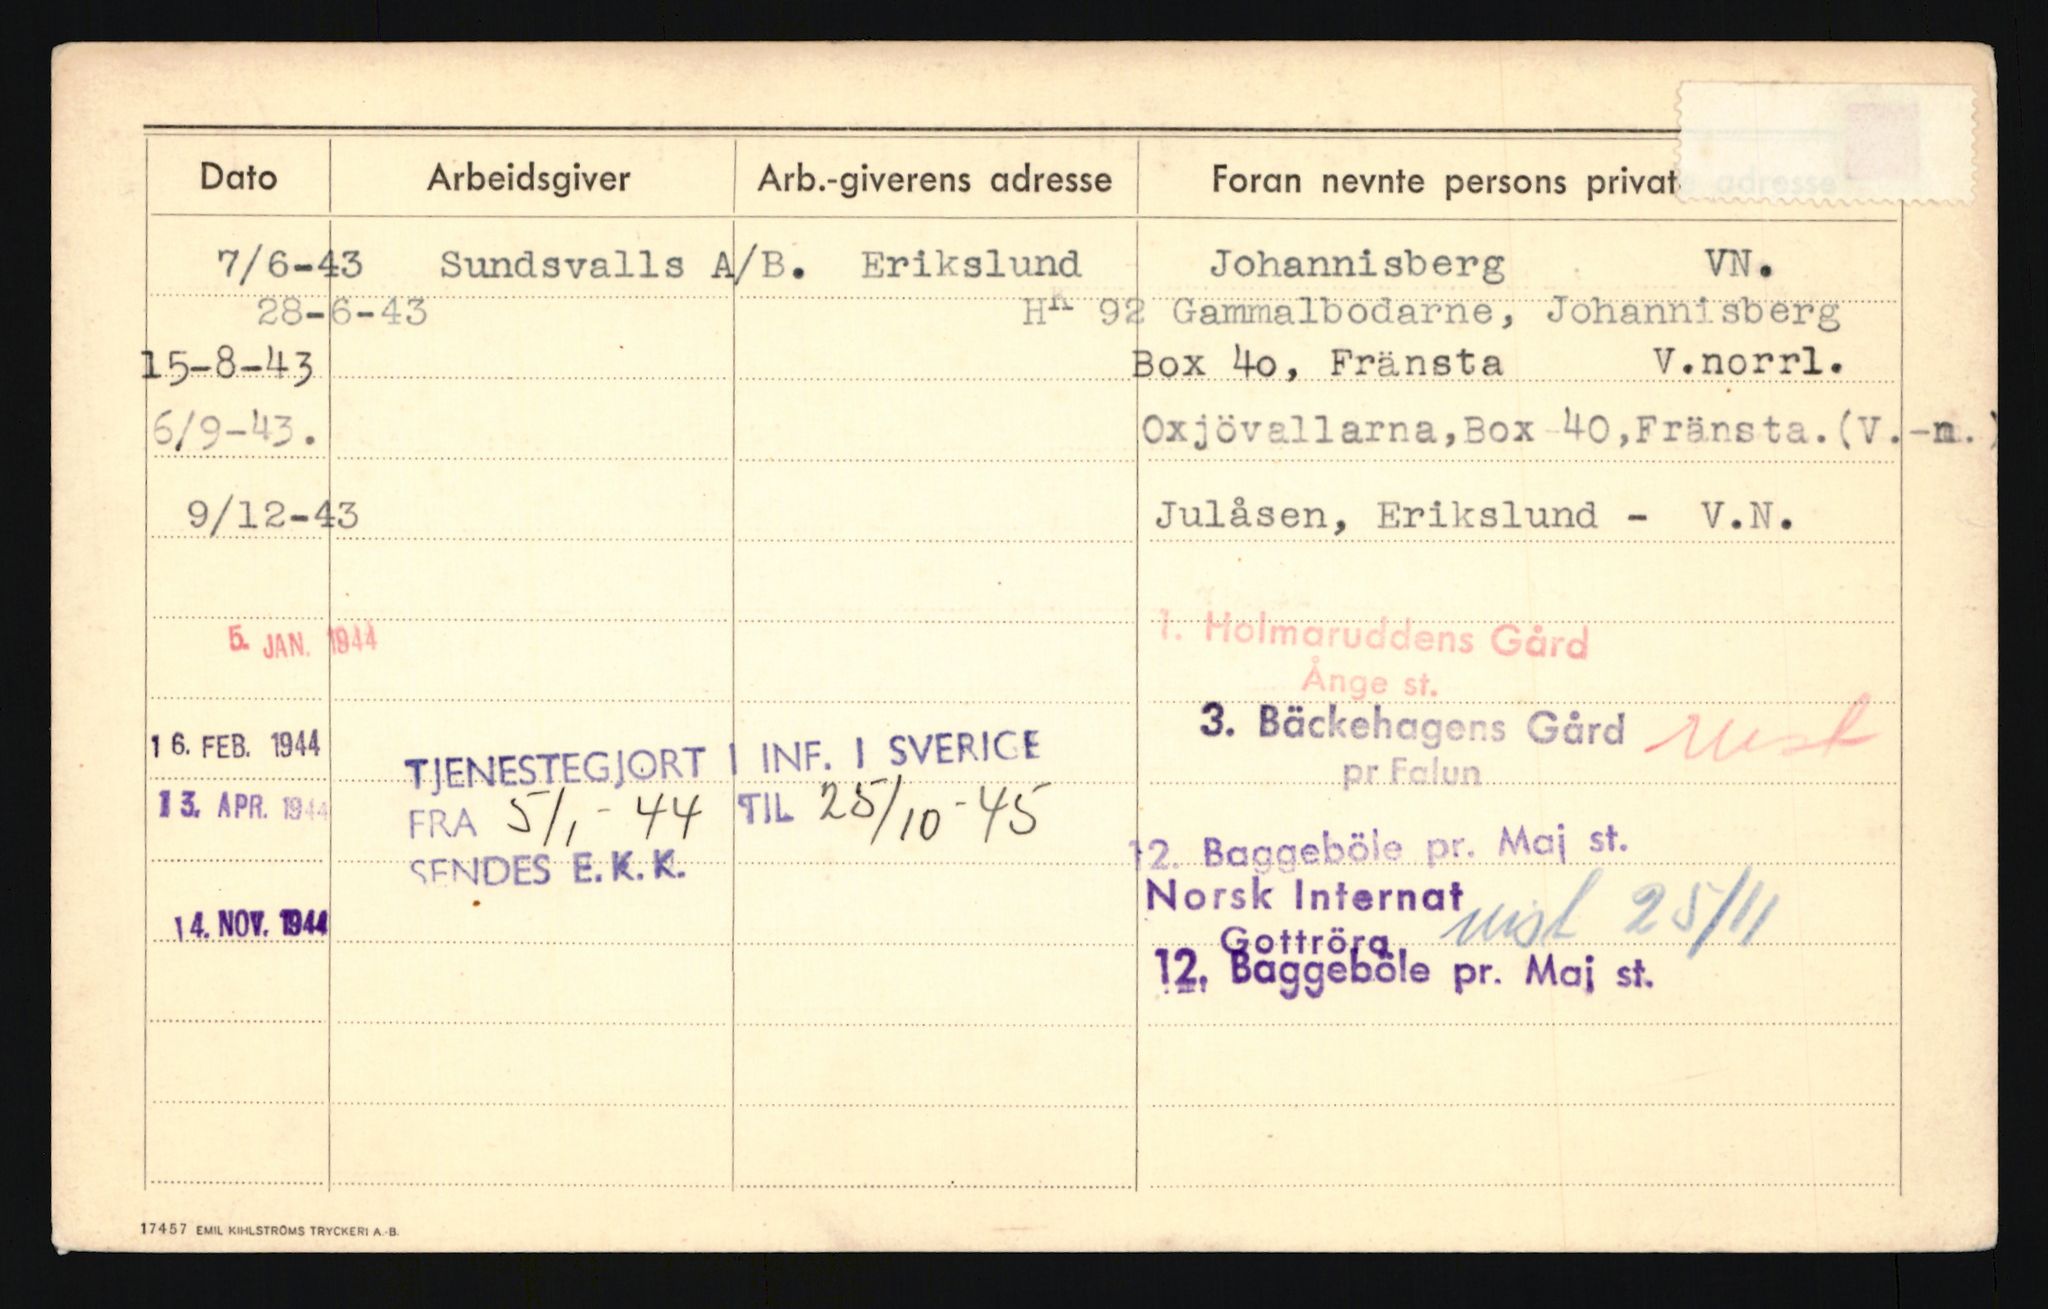 Dato Arbeidsgiver Arb.-giverens adresse Foran nevnte persons private adresse
7/6-43 Sundsvalls A/B. Erikslund Johannisberg VN.
28-6-43 HK 92 Gammalbodarne, Johannisberg
15-8-43 Box 4o, Fränsta V.norrl.
6/9-43. Oxjövallarna,Box 40,Fränsta.(V.-n.)
9/12-43 Julåsen, Erikslund - V.N.
5. JAN. 1944 1. Holmaruddens Gård
Ånge st.
16. FEB. 1944 3. Bäckehagens Gård
pr Falun
TJENESTEGJORT I INF. I SVERIGE
13. APR. 1944 FRA 5/1-44 TIL 25/10-45
SENDES E.K.K.
12. Baggeböle pr. Maj st.
14. NOV. 1944 Norsk Internat
Gottröra 25/11
12. Baggeböle pr. Maj st.
17457 EMIL KIHLSTRÖMS TRYCKERI A.-B.